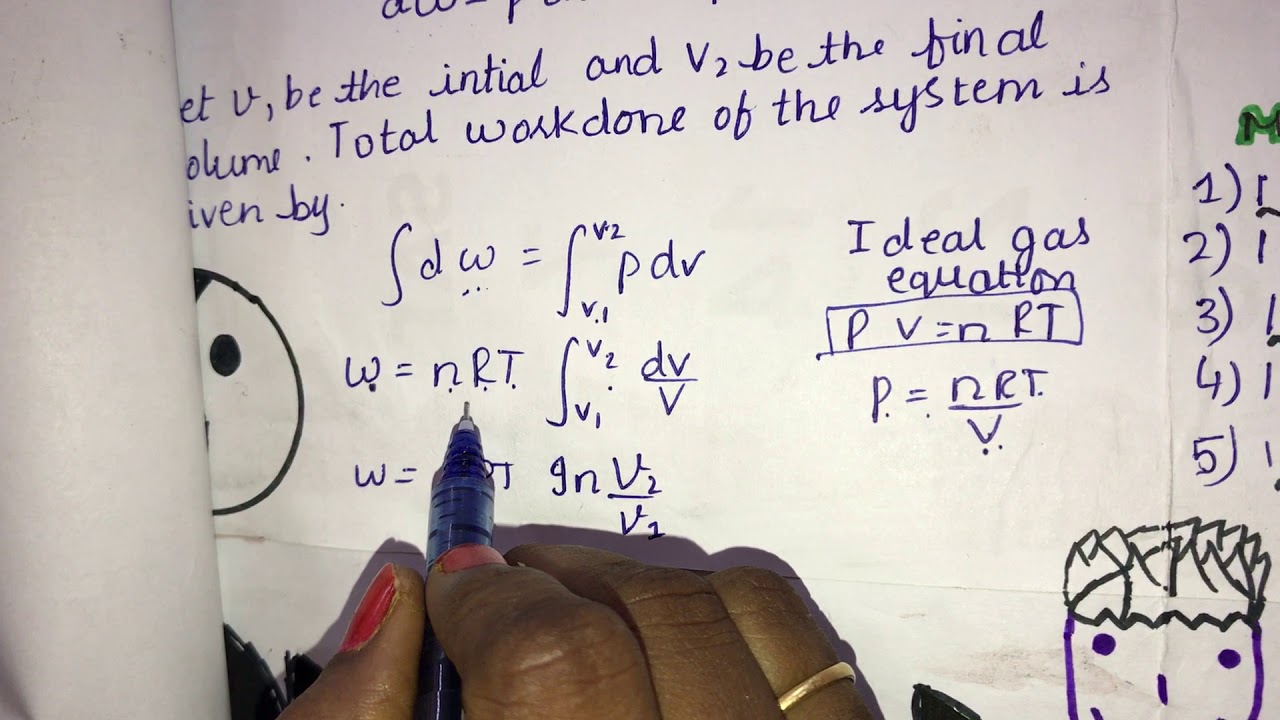 dw = p
et V1 be the intial and V2 be the final
olume. Total workdone of the system is
iven by.
∫dw = ∫V1^V2 p dv
w = nRT ∫V1^V2 dv/V
w = RT ln V2/V1
Ideal gas
equation
P V = n RT
P = nRT/V
M
1) I
2) I
3) I
4) I
5)